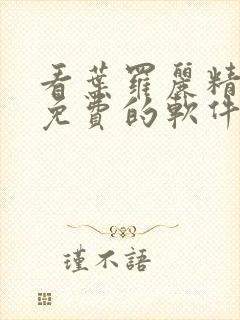 看葉羅麗精
免費的軟件
瑾不語